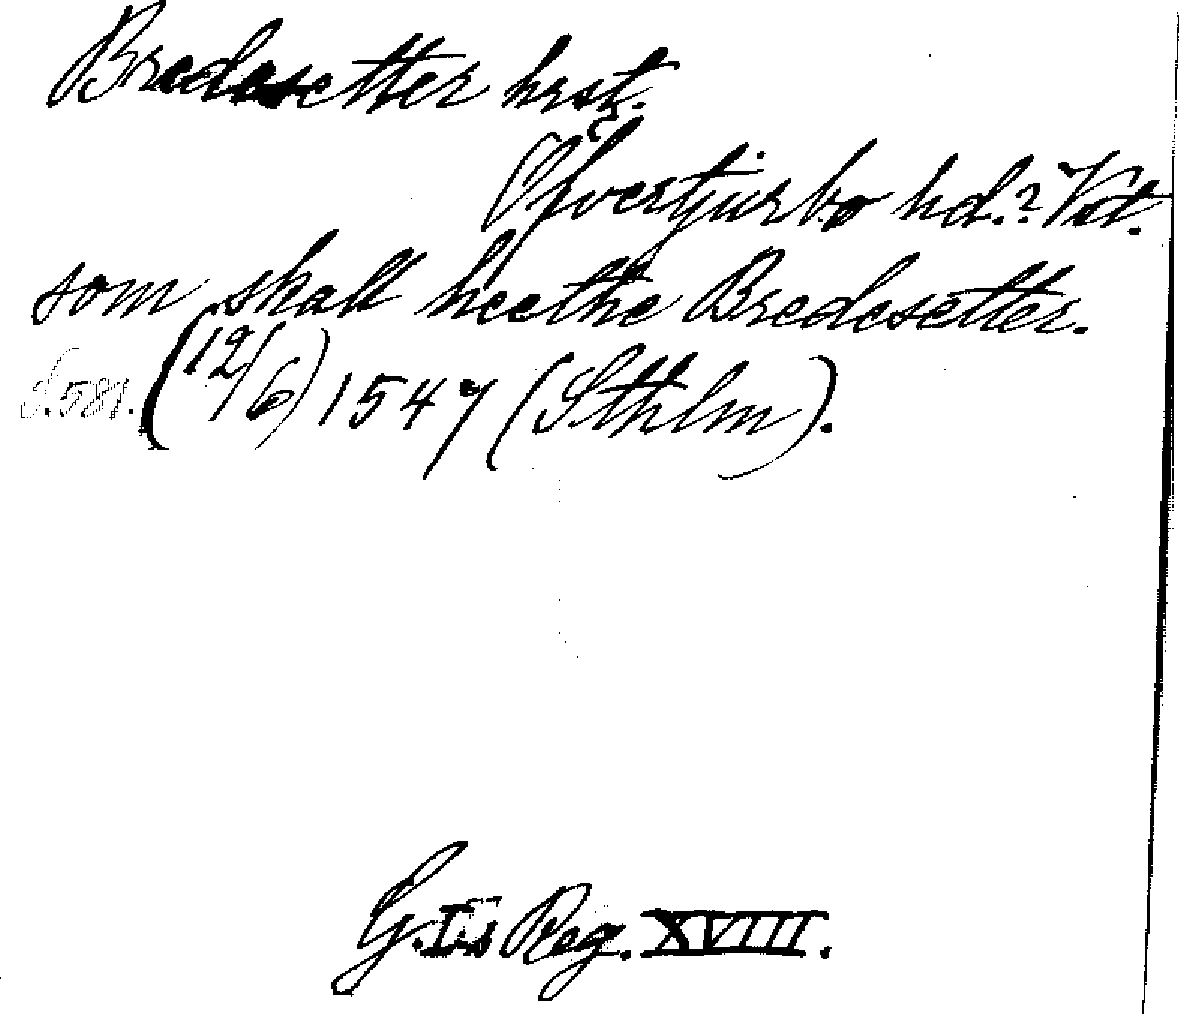 Bredesetter hrst.
Öfvertjurbo hd.? Vst.
som skall heethe Bredesetter.
S. 581. (12/6) 1547 (Sthlm).
G. I:s Reg. XVIII.